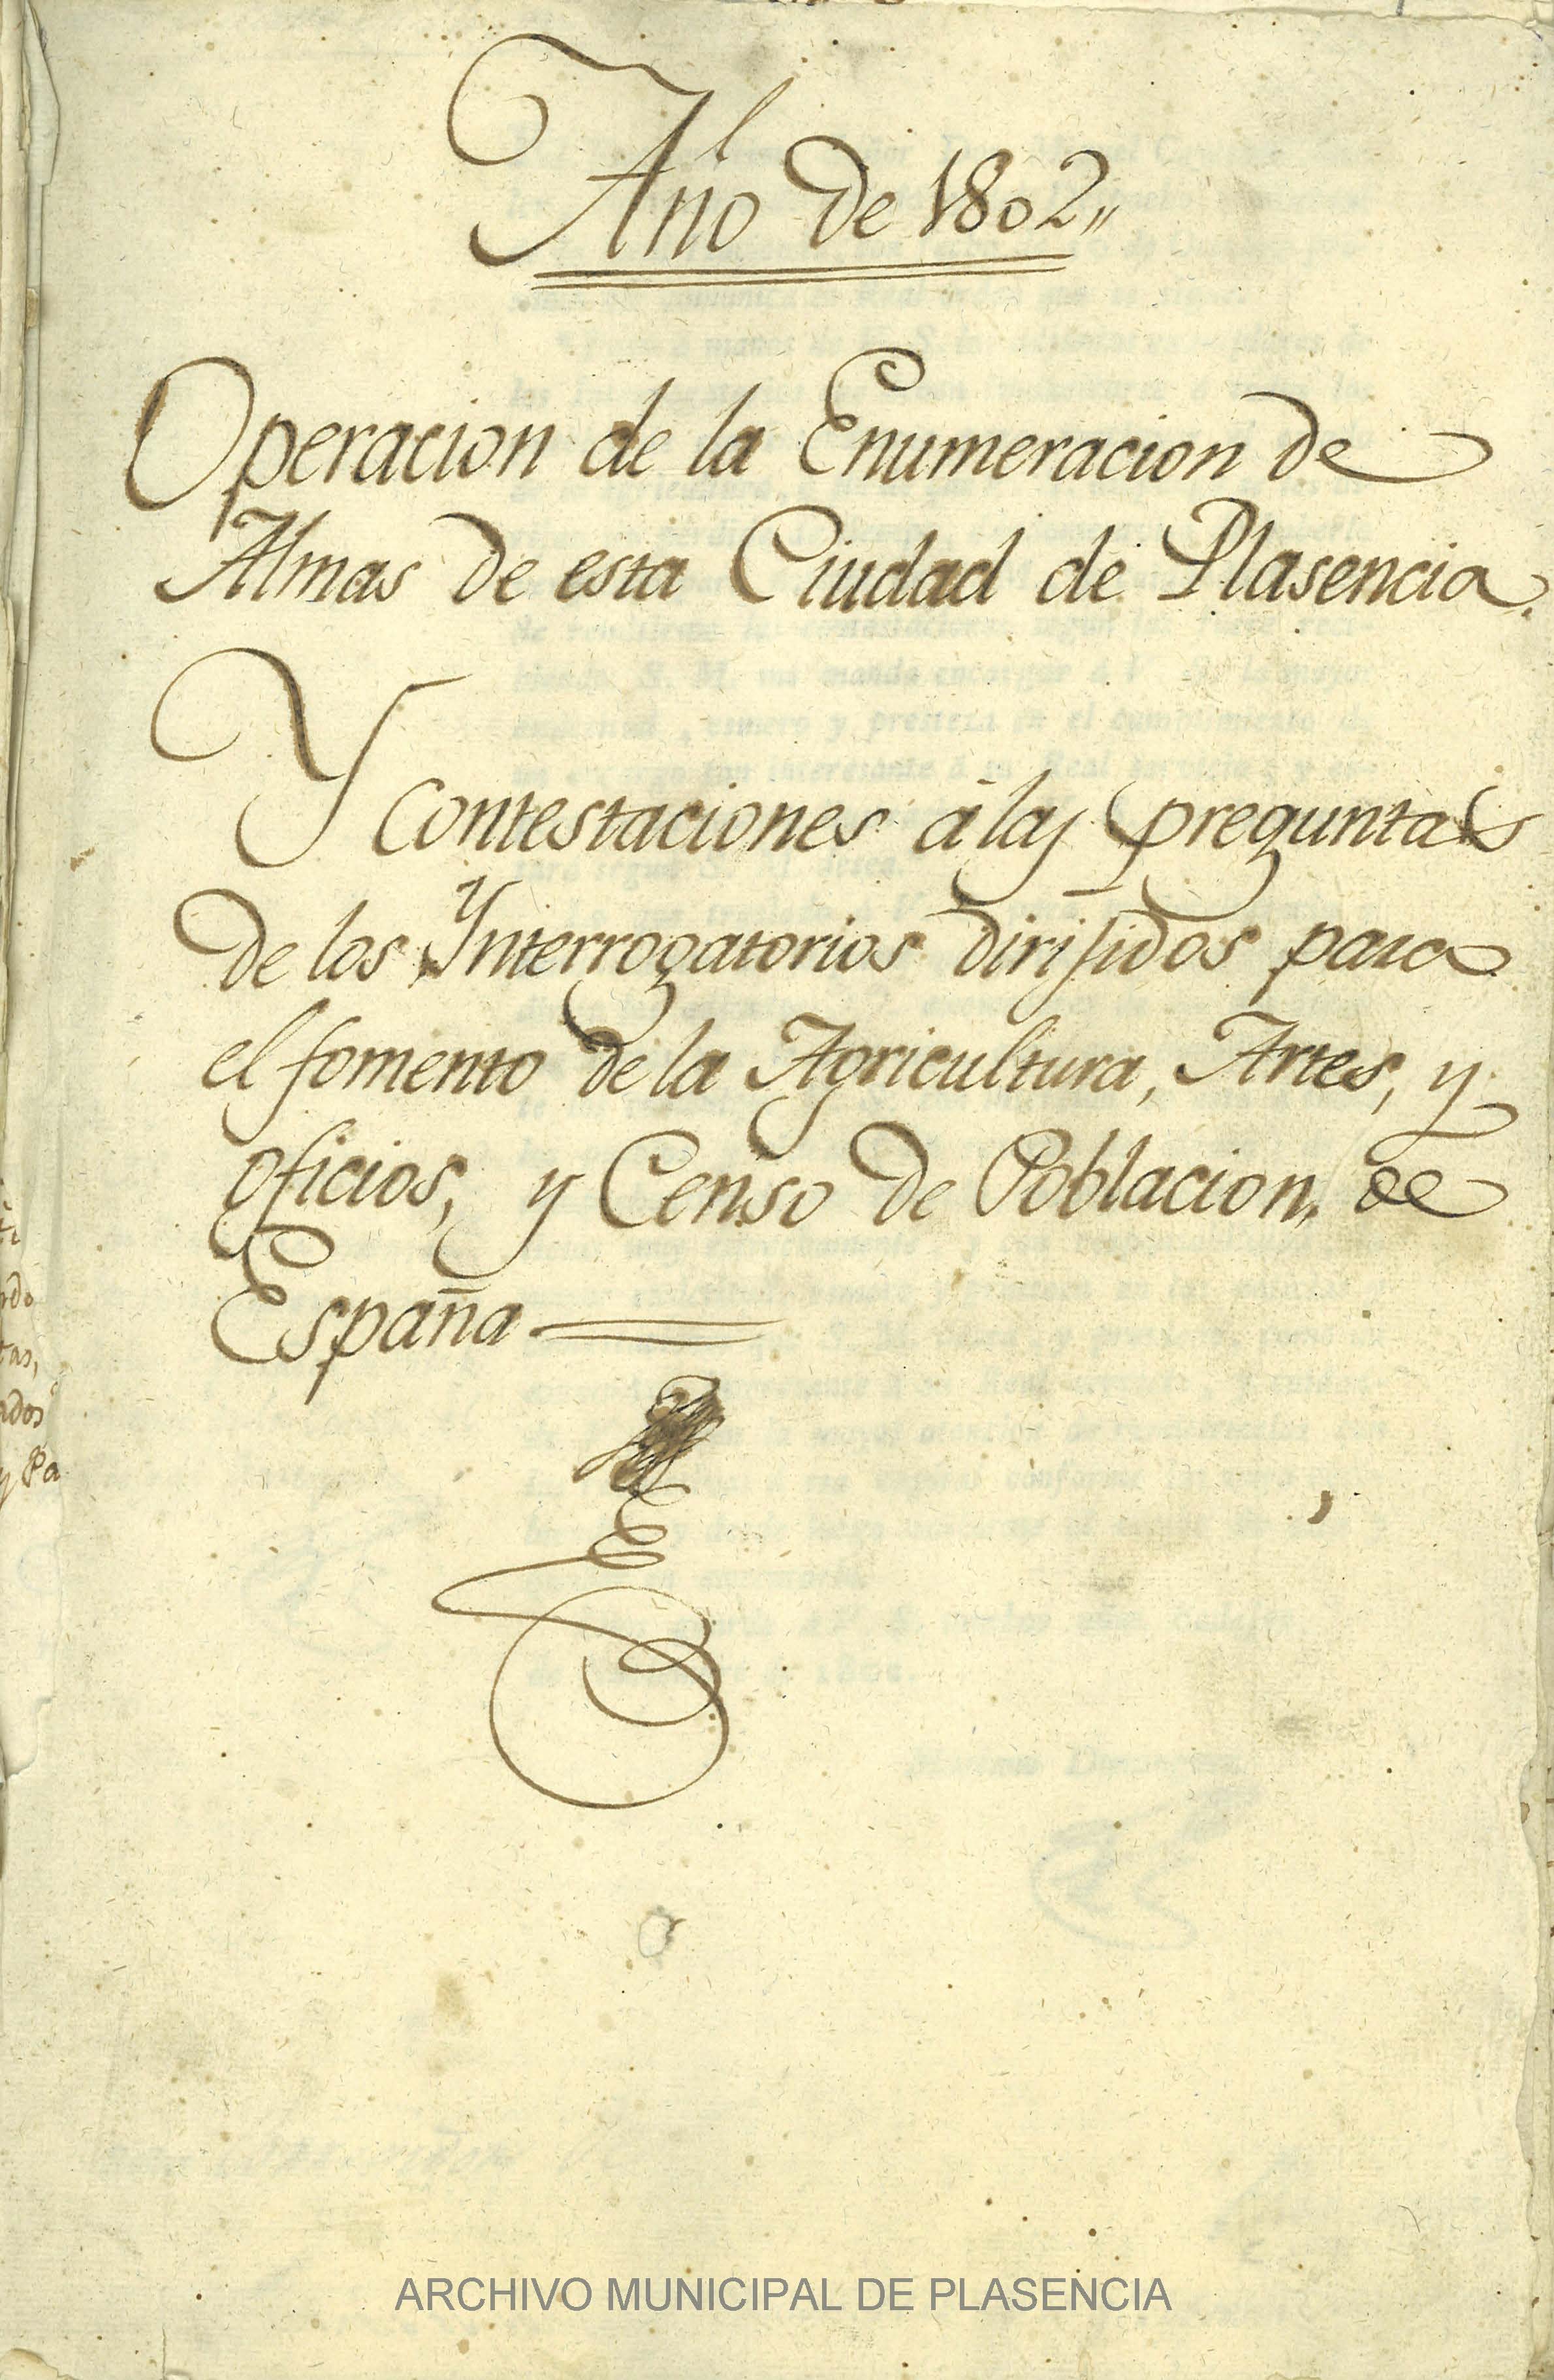 Año de 1802,,
Operacion de la Enumeracion de
Almas de esta Ciudad de Plasencia.
Y Contestaciones á las preguntas
de los Ynterrogatorios dirijidos para
el fomento de la Agricultura, Artes, y
oficios, y Censo de Poblacion, de
España
tas,
ados
y Pa
ARCHIVO MUNICIPAL DE PLASENCIA